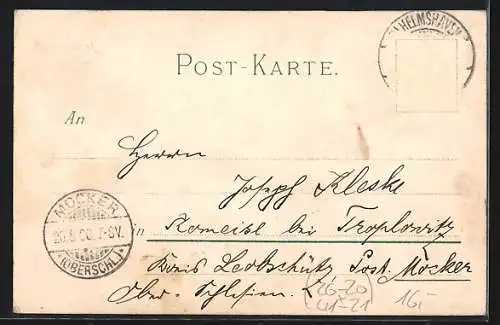 HELMSHAVEN
POST-KARTE.
An
Herrn
Joseph Kleske
in Komeise bei Troplowitz
Kreis Leobschütz Post. Mocker
Ober-Schlesien.
MOCKER
7-8V.
(OBERSCHL.)
26-20
41-21
16,-